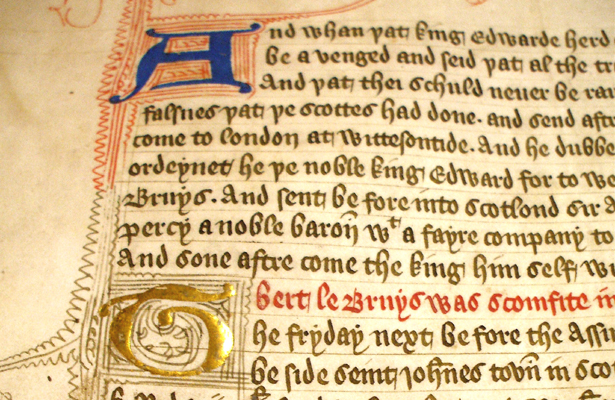 And whan þat king Edwarde herd
be a venged and seid þat al the
And þat thei schuld neuer be
falsnes þat þe scottes had done. and send
come to london at wittesontide. And he
ordeynet he þe noble king Edward for to
Bruys. And sent be fore into scotlond sir
percy a noble baron̄ wᵗ a fayre company to
And sone aftre come the king him self
bert le Bruys was scomfite
The fryday next be fore the
be side seint Joh̄nes toun̄ in